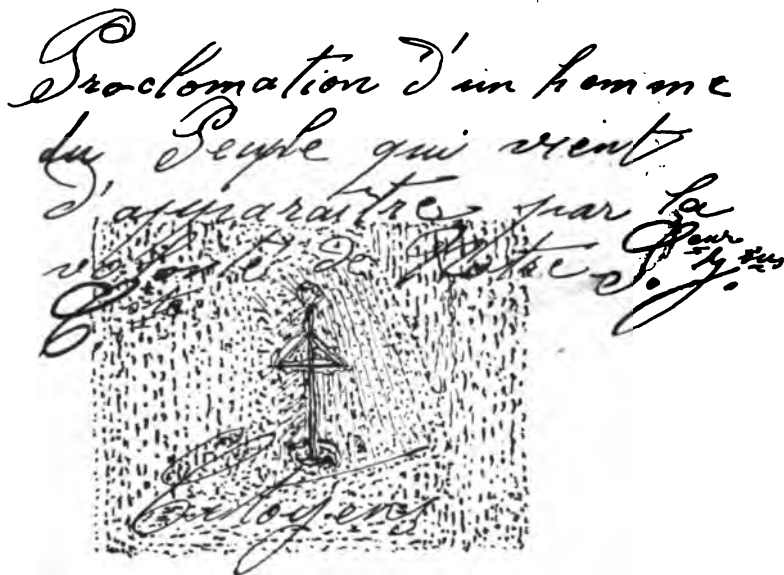 Proclomation d'un homme
du Peuple qui vient
d'apparaitre par la
volonté de Notre S. J.
Citoyens